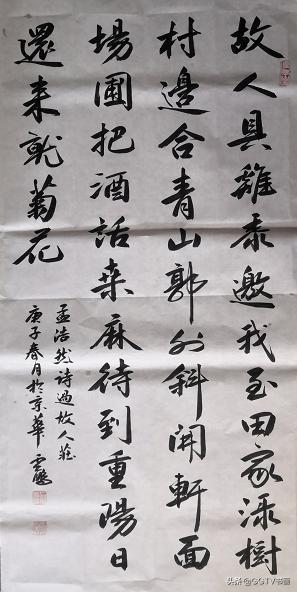 故人具雞黍邀我至田家渌樹
村邊合青山郭外斜開軒面
場圃把酒話桑麻待到重陽日
還来就菊花
孟浩然诗過故人莊
庚子春月於京華
头条@GGTV书画